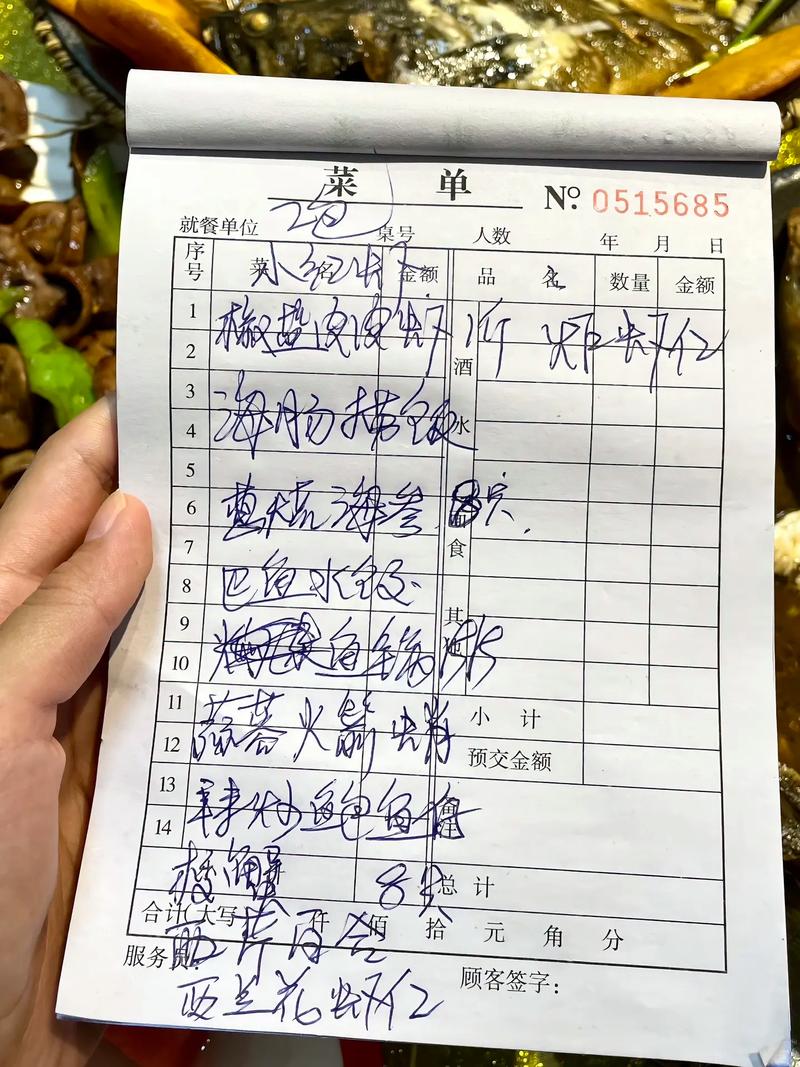 菜 单 No. 0515685
就餐单位 2包 桌号 人数 年 月 日
小红虾
序号 菜名 金额 品名 数量 金额
1
椒盐皮皮虾 1斤 炸虾仁
2 酒
3
海肠捞饭 水
4
5
葱烧海参 8只
6
7 食
8 巴鱼水饺
9 其他
鱼锅
10
11 小计
蒜蓉火箭
12 预交金额
13
炒鲍鱼
14
梭蟹 8只 总计
合计(大写 仟 佰 拾 元 角 分
西芹百合
服务员: 顾客签字:
西兰花虾仁